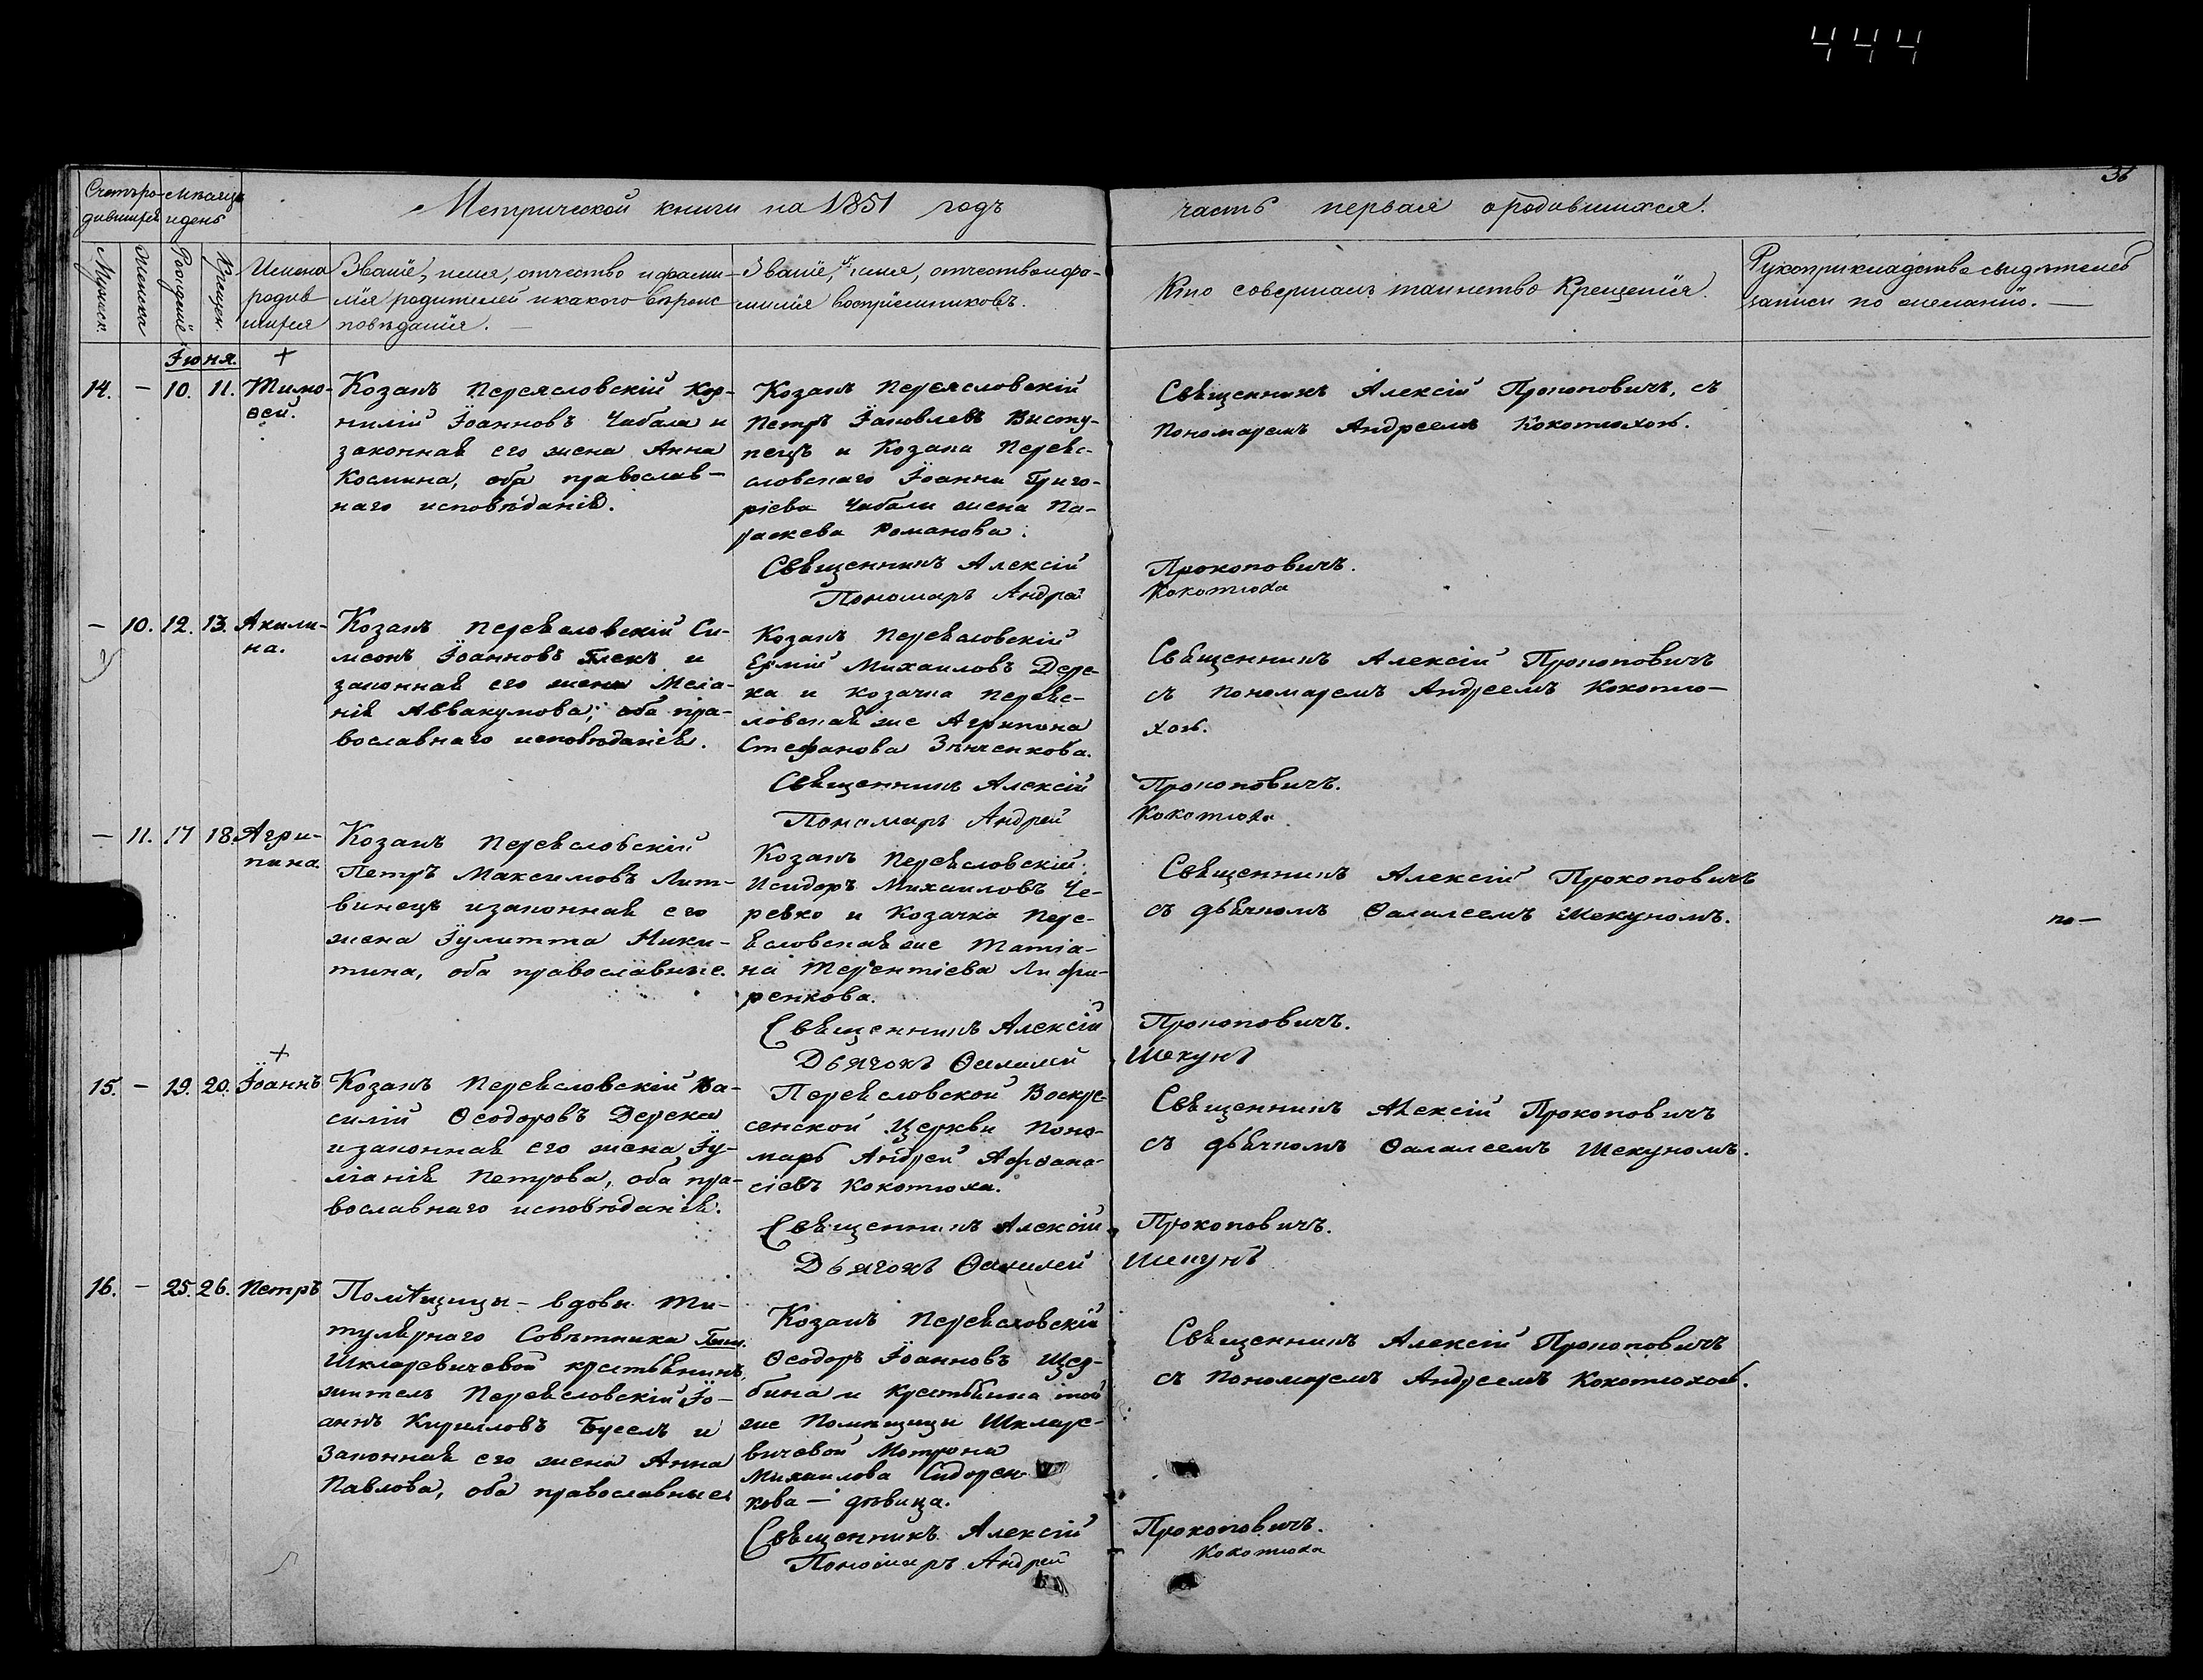 444
36
Счетъ ро-
дившихся
Мѣсяцъ
и день
Метрической книги на 1851 годъ
часть первая о родившихся.
Мужеск.
Женска
Рожденіе
Крещен.
Имена
родив
шихся
Званіе, имя, отчество и фами-
лія родителей и какого вѣроис
повѣданія. —
Званіе, имя, отчество и фа-
милія воспріемниковъ.
Кто совершалъ таинство Крещенія.
Рукоприкладство свидѣтелей
записи по желанію. —
Іюня.
+
14. — 10. 11.
Тимо-
ѳей.
Козакъ Переясловскій Кор-
нилій Іоанновъ Чабала и
законная его жена Анна
Космина, оба православ-
наго исповѣданія.
Козакъ Переясловскій
Петръ Іаковлевъ Высту-
пецъ и Козака Переяс-
ловскаго Іоанна Григо-
ріева Чабали жена Па-
раскева Романова.
Священникъ Алексій Прокоповичъ, съ
Пономаремъ Андреемъ Кокотюхою.
Священникъ Алексій Прокоповичъ.
Пономарь Андрей Кокотюха
— 10. 12. 13.
Акили-
на.
Козакъ Переясловскій Си-
меонъ Іоанновъ и
законная его жена Мела-
нія Аввакумова, оба пра-
вославнаго исповѣданія.
Козакъ Переясловскій
Ермій Михаиловъ Дере-
ка и козачка Переяс-
ловская же Агрипина
Стефанова Зѣнченкова.
Священникъ Алексій Прокоповичъ
съ пономаремъ Андреемъ Кокотю-
хою.
Священникъ Алексій Прокоповичъ.
Пономарь Андрей Кокотюха
— 11. 17 18.
Агри-
пина.
Козакъ Переясловскій
Петръ Максимовъ Лит-
винецъ и законная его
жена Іулитта Ники-
тина, оба православные.
Козакъ Переясловскій
Исидоръ Михаиловъ Че-
ревко и Козачка Пере-
ясловская же Татіа-
на Терентіева Лифи-
ренкова.
Священникъ Алексій Прокоповичъ
съ дьячкомъ Ѳалалеемъ Шекуномъ.
по —
Священникъ Алексій Прокоповичъ.
Дьячокъ Ѳалилей Шекунъ
+
15. — 19. 20.
Іоаннъ
Козакъ Переясловскій Ва-
силій Ѳеодоровъ Дерека
и законная его жена Іу-
ліанія Петрова, оба пра-
вославнаго исповѣданія.
Переясловской Воскре-
сенской Церкви Поно-
марь Андрей Афана-
сіевъ Кокотюха.
Священникъ Алексій Прокоповичъ
съ дьячкомъ Ѳалалеемъ Шекуномъ.
Священникъ Алексій Прокоповичъ.
Дьячокъ Ѳалилей Шекунъ
16. — 25. 26.
Петръ
Помѣщицы - вдовы Ти-
тулярнаго Совѣтника
Шкляревичевой крестьянинъ,
житель Переясловскій Іо-
аннъ Кирилловъ Буселъ и
законная его жена Анна
Павлова, оба православные
Козакъ Переясловскій
Ѳеодоръ Іоанновъ Щер-
бина и крестьянка той
же Помѣщицы Шкляре-
вичевой Мотрона
Михаилова Сидорен-
кова — дѣвица.
Священникъ Алексій Прокоповичъ
съ Пономаремъ Андреемъ Кокотюхою.
Священникъ Алексій Прокоповичъ.
Пономарь Андрей Кокотюха